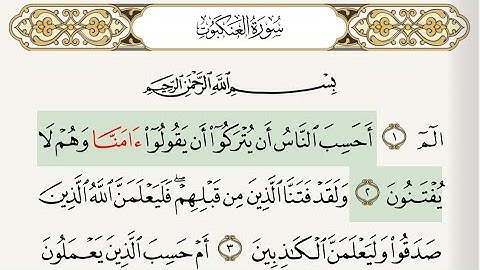 سُورَةُ الْعَنكَبُوتِ
بِسْمِ ٱللَّهِ ٱلرَّحْمَٰنِ ٱلرَّحِيمِ
الٓمٓ ١ أَحَسِبَ ٱلنَّاسُ أَن يُتْرَكُوٓا۟ أَن يَقُولُوٓا۟ ءَامَنَّا وَهُمْ لَا
يُفْتَنُونَ ٢ وَلَقَدْ فَتَنَّا ٱلَّذِينَ مِن قَبْلِهِمْ ۖ فَلَيَعْلَمَنَّ ٱللَّهُ ٱلَّذِينَ
صَدَقُوا۟ وَلَيَعْلَمَنَّ ٱلْكَٰذِبِينَ ٣ أَمْ حَسِبَ ٱلَّذِينَ يَعْمَلُونَ